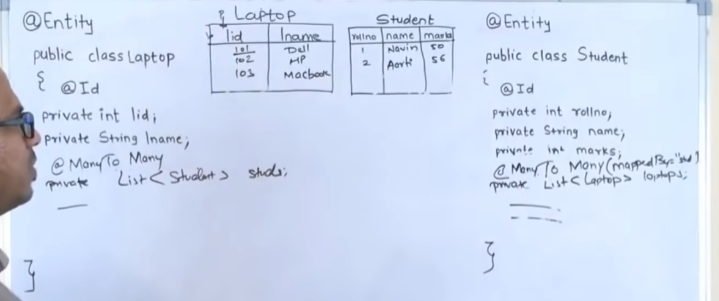 @Entity
public class Laptop
{
@Id
private int lid;
private String lname;
@ManyToMany
private List<Student> studs;
}
Laptop
lid lname
101 Dell
102 HP
103 Macbook
Student
rollno name marks
1 Navin 50
2 Aarti 56
@Entity
public class Student
{
@Id
private int rollno;
private String name;
private int marks;
@ManyToMany(mappedBy="
private List<Laptop> laptops;
}